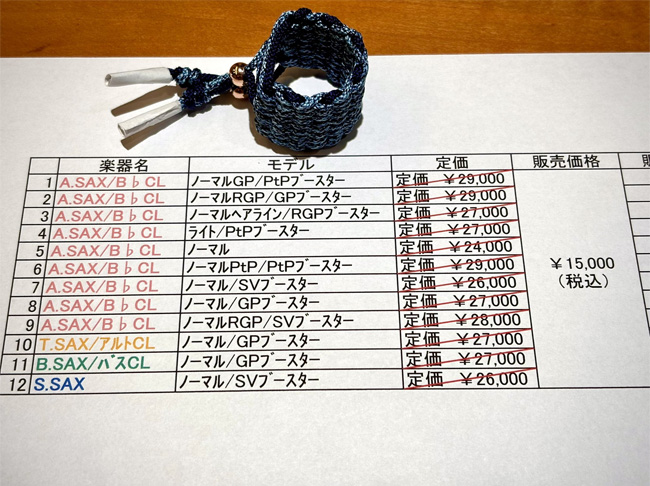 楽器名 モデル 定価 販売価格 販
1 A.SAX/B♭CL ノーマルGP/PtPブースター 定価 ￥29,000
2 A.SAX/B♭CL ノーマルRGP/GPブースター 定価 ￥29,000
3 A.SAX/B♭CL ノーマルヘアライン/RGPブースター 定価 ￥27,000
4 A.SAX/B♭CL ライト/PtPブースター 定価 ￥27,000
5 A.SAX/B♭CL ノーマル 定価 ￥24,000
6 A.SAX/B♭CL ノーマルPtP/PtPブースター 定価 ￥29,000
￥15,000
7 A.SAX/B♭CL ノーマル/SVブースター 定価 ￥26,000
（税込）
8 A.SAX/B♭CL ノーマル/GPブースター 定価 ￥27,000
9 A.SAX/B♭CL ノーマルRGP/SVブースター 定価 ￥28,000
10 T.SAX/アルトCL ノーマル/GPブースター 定価 ￥27,000
11 B.SAX/バスCL ノーマル/GPブースター 定価 ￥27,000
12 S.SAX ノーマル/SVブースター 定価 ￥26,000